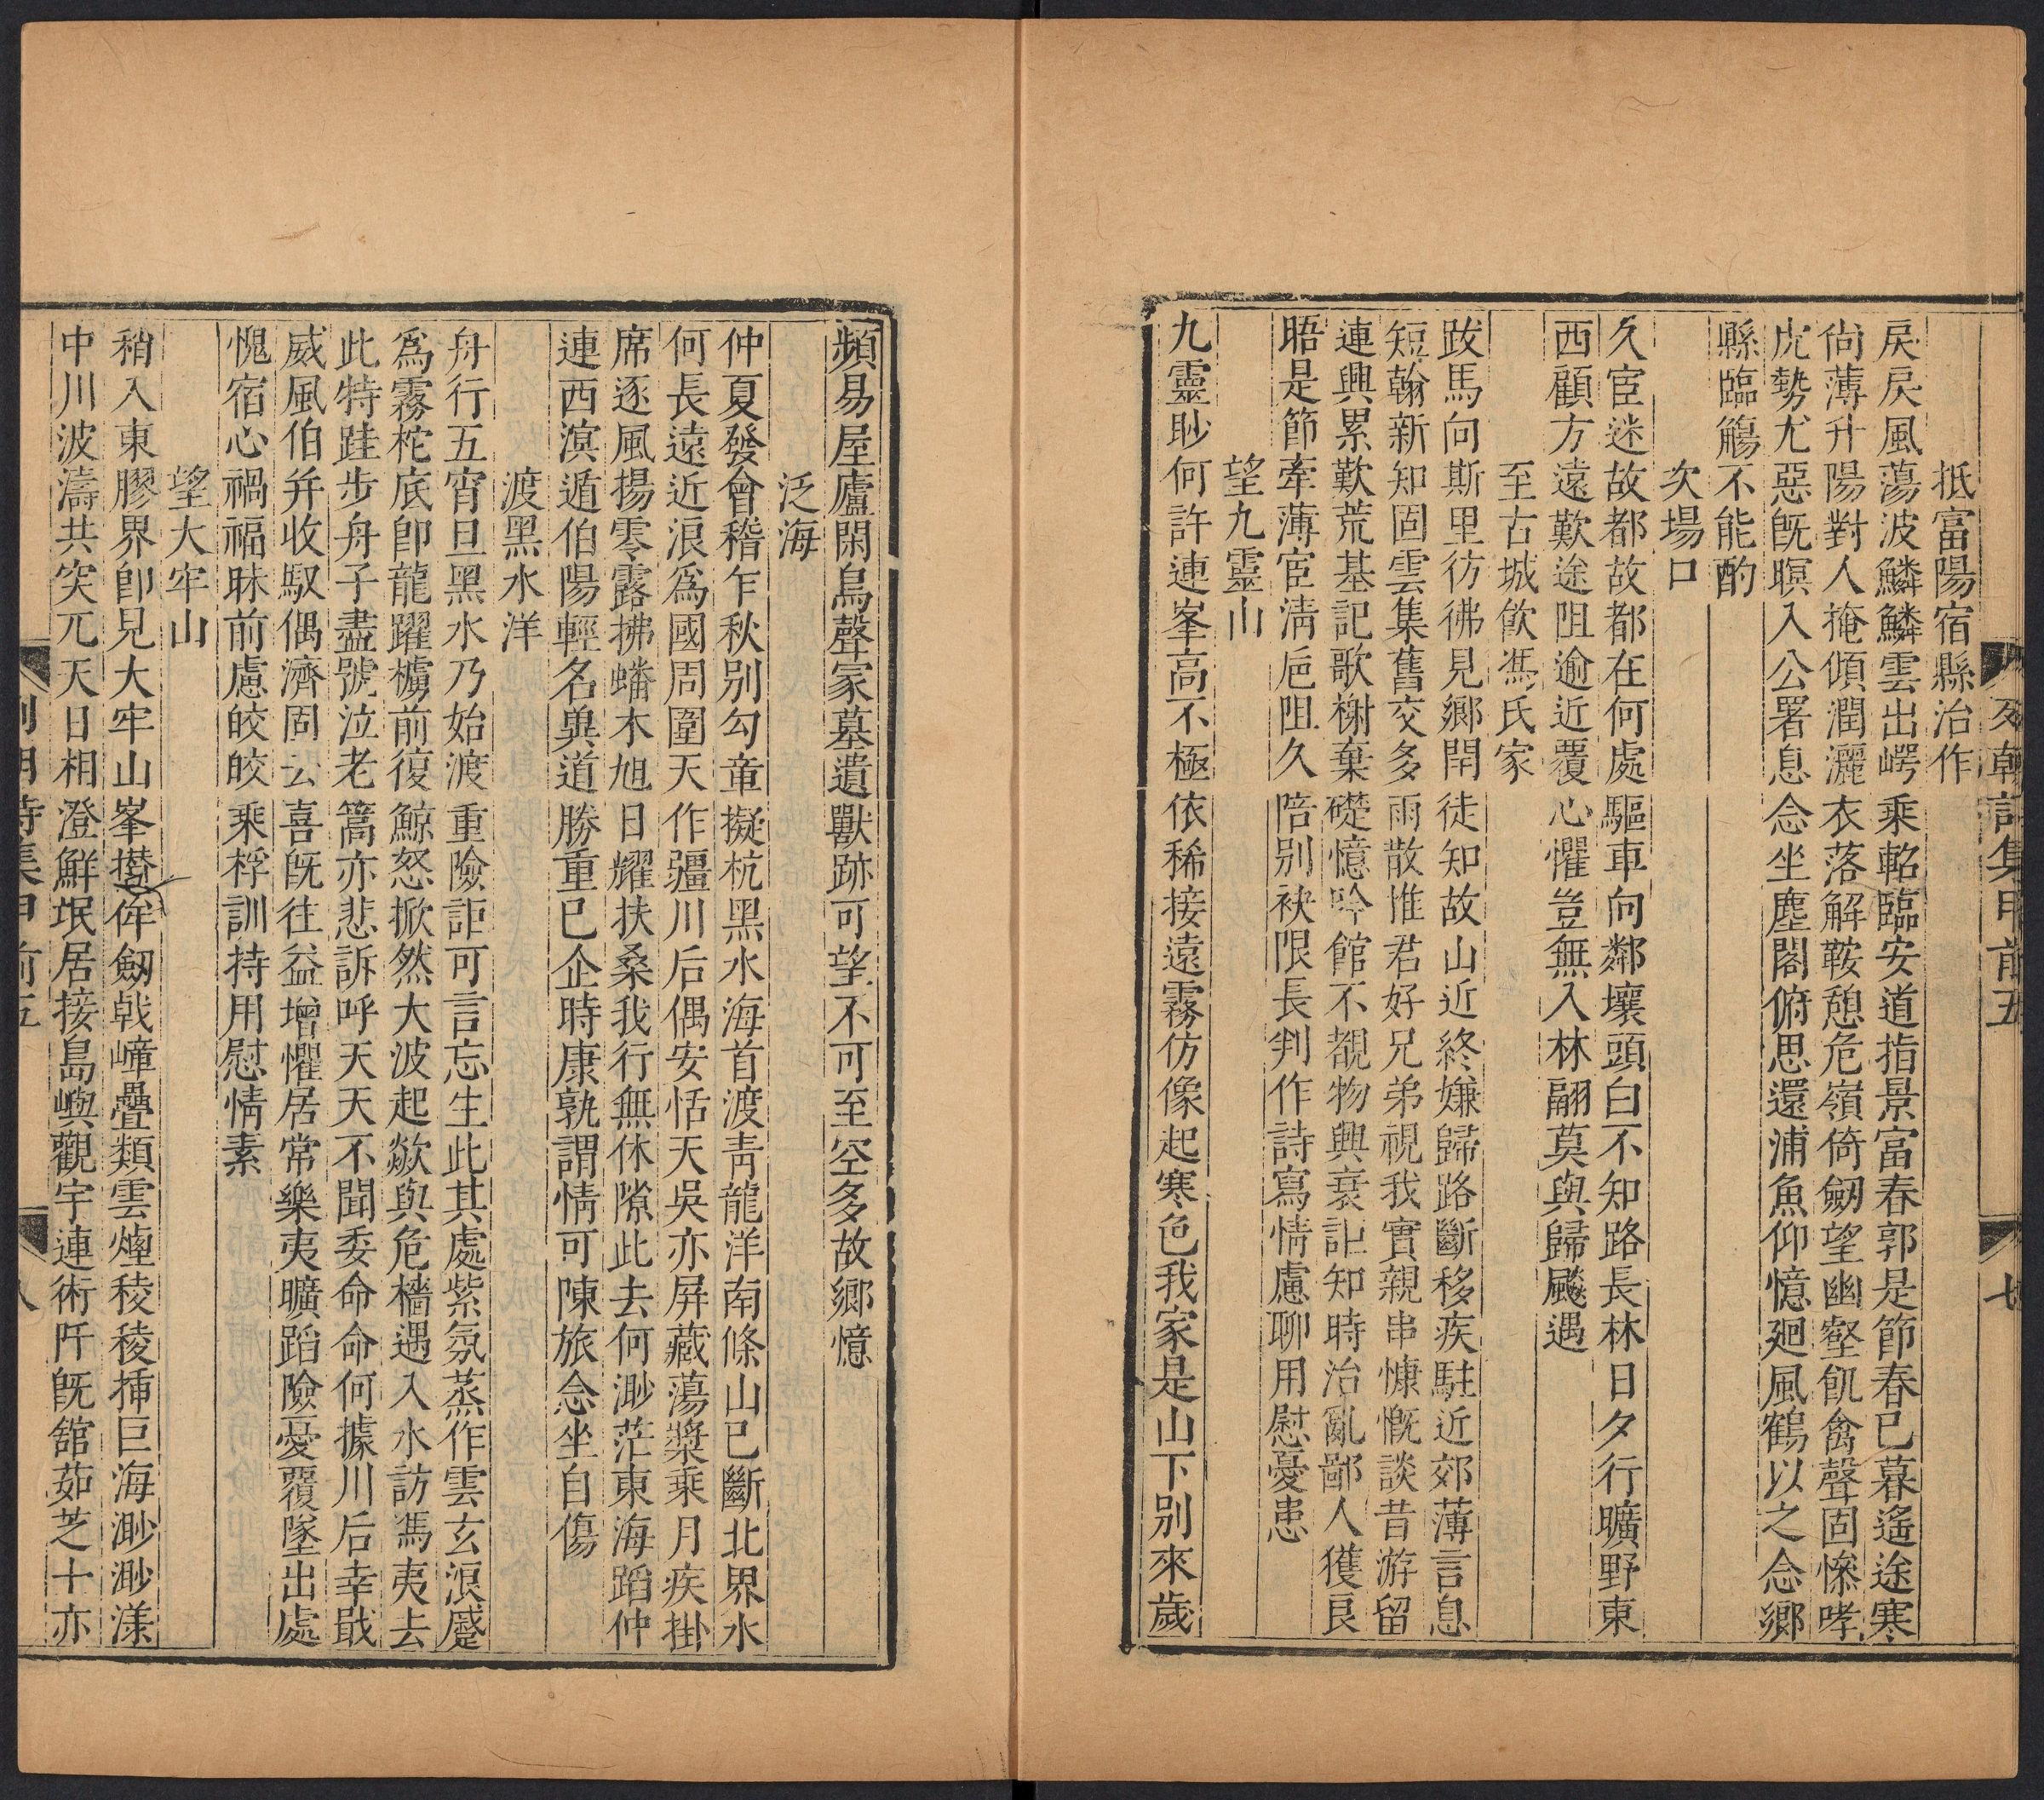 列朝詩集甲前五
七
抵富陽宿縣治作
戾戾風蕩波鱗鱗雲出崿乘軺臨安道指景富春郭是節春已暮遙途寒
尙薄升陽對人掩傾潤灑衣落解鞍憩危嶺倚劒望幽壑飢禽聲固慘哮
虎勢尤惡旣暝入公署息念坐塵閣俯思還浦魚仰憶廻風鶴以之念鄉
縣臨觴不能酌
次場口
久宦迷故都故都在何處驅車向鄰壤頭白不知路長林日夕行曠野東
西顧方遠歎途阻逾近覆心懼豈無入林翮莫與歸颷遇
至古城飲馮氏家
跋馬向斯里彷彿見鄉閈徒知故山近終嫌歸路斷移疾駐近郊薄言息
短翰新知固雲集舊交多雨散惟君好兄弟視我實親串慷慨談昔游留
連興累歎荒基記歌榭棄礎憶吟館不覩物興衰詎知時治亂鄙人獲良
晤是節牽薄宦淸巵阻久陪别袂限長判作詩寫情慮聊用慰憂患
望九靈山
九靈眇何許連峯高不極依稀接遠霧仿像起寒色我家是山下别來歲
頻易屋廬閑鳥聲家墓遺獸跡可望不可至空多故鄉憶
泛海
仲夏發會稽乍秋别勾章擬杭黑水海首渡靑龍洋南條山已斷北界水
何長遠近浪爲國周圍天作疆川后偶安恬天吳亦屏藏蕩槳乘月疾掛
席逐風揚零露拂蟠木旭日耀扶桑我行無休隙此去何渺茫東海蹈仲
連西溟遁伯陽輕名與道勝重已企時康孰謂情可陳旅念坐自傷
渡黑水洋
舟行五宵旦黑水乃始渡重險詎可言忘生此其處紫氛蒸作雲玄浪蹙
爲霧柁底卽龍躍櫓前復鯨怒掀然大波起歘與危檣遇入水訪馮夷去
此特跬步舟子盡號泣老篙亦悲訴呼天天不聞委命命何據川后幸戢
威風伯幷收馭偶濟固云喜旣往益增懼居常樂夷曠蹈險憂覆墜出處
愧宿心禍福昧前慮皎皎乘桴訓持用慰情素
望大牢山
稍入東膠界卽見大牢山峯攢侔劒戟嶂疊類雲煙稜稜揷巨海渺渺漾
中川波濤共突兀天日相澄鮮氓居接島嶼觀宇連術阡旣舘茹芝士亦
列朝詩集甲前五
八